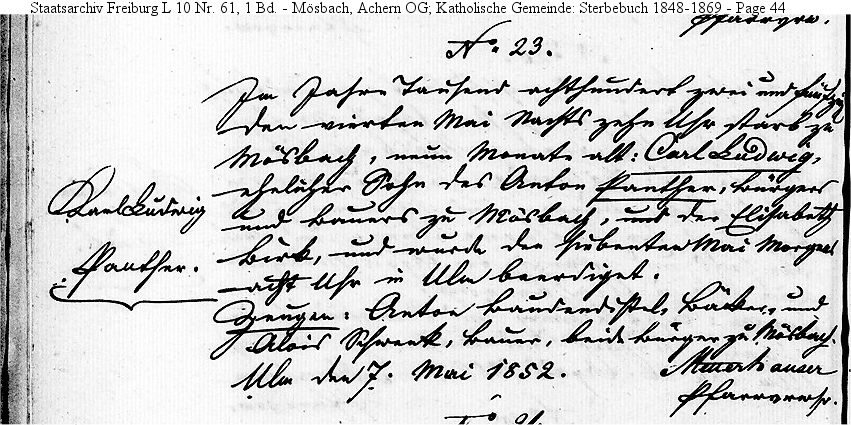 Staatsarchiv Freiburg L 10 Nr. 61, 1 Bd. - Mösbach, Achern OG; Katholische Gemeinde: Sterbebuch 1848-1869 - Page 44
Pfarrverw.
No 23.
Im Jahre Tausend achthundert zwei und fünfzig
den vierten Mai Nachts zehn Uhr starb zu
Mösbach, neun Monate alt: Carl Ludwig,
ehelicher Sohn des Anton Panther, Bürgers
und Bauers zu Mösbach, und der Elisabeth
Birk, und wurde den siebenten Mai Morgens
acht Uhr in Ulm beerdiget.
Zeugen: Anton Baudendistel, Bäcker, und
Alois Schwenk, Bauer, beide Bürger zu Mösbach.
Ulm den 7. Mai 1852.
Pfarrverw.
Karl Ludwig
Panther.